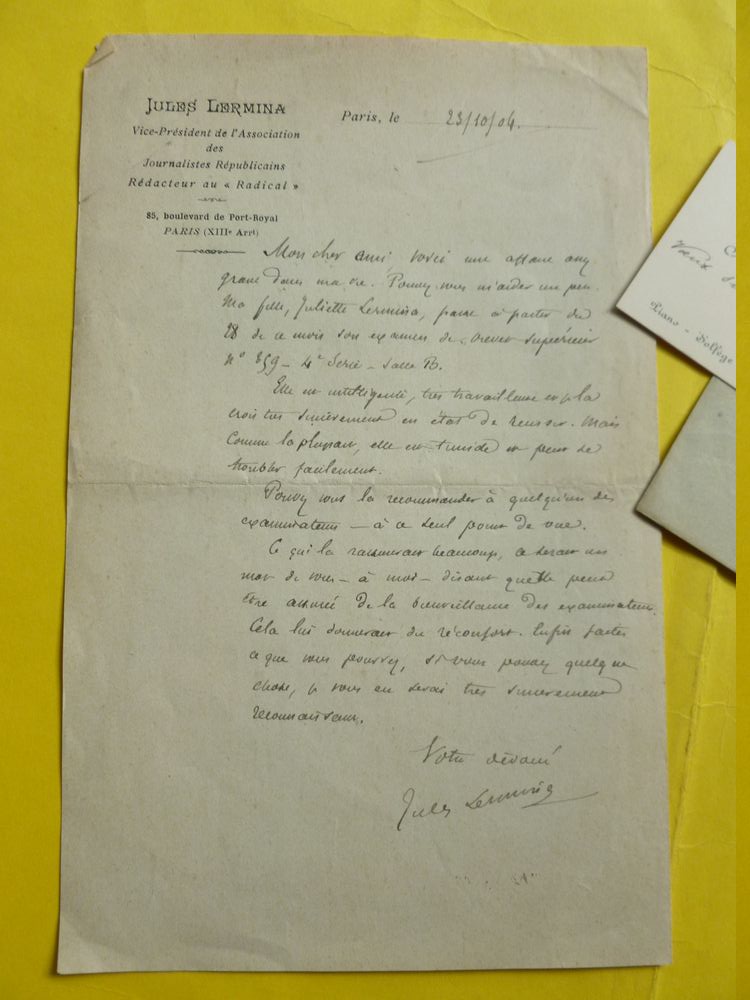 JULES LERMINA
Vice-Président de l'Association
des
Journalistes Républicains
Rédacteur au « Radical »
85, boulevard de Port-Royal
PARIS (XIIIe Arrt)
Paris, le 23/10/04.
Mon cher ami voici une affaire assez
grave dans ma vie. Pouvez vous m'aider un peu.
Ma fille, Juliette Lermina, passe à partir du
28 de ce mois son examen de brevet supérieur
n° 859 - 4e Série - Salle B.
Elle est intelligente, très travailleuse et je la
crois très sincèrement en état de réussir. Mais
comme la plupart, elle est timide et peut se
troubler facilement.
Pouvez vous la recommander à quelqu'un des
examinateurs — à ce seul point de vue.
Ce qui la rassurerait beaucoup, ce serait un
mot de vous - à moi - disant qu'elle peut
être assurée de la bienveillance des examinateurs.
Cela lui donnerait du réconfort. Enfin faites
ce que vous pourrez, si vous pouvez quelque
chose, je vous en serai très sincèrement
reconnaissant.
Votre dévoué
Jules Lermina
Piano - Solfège